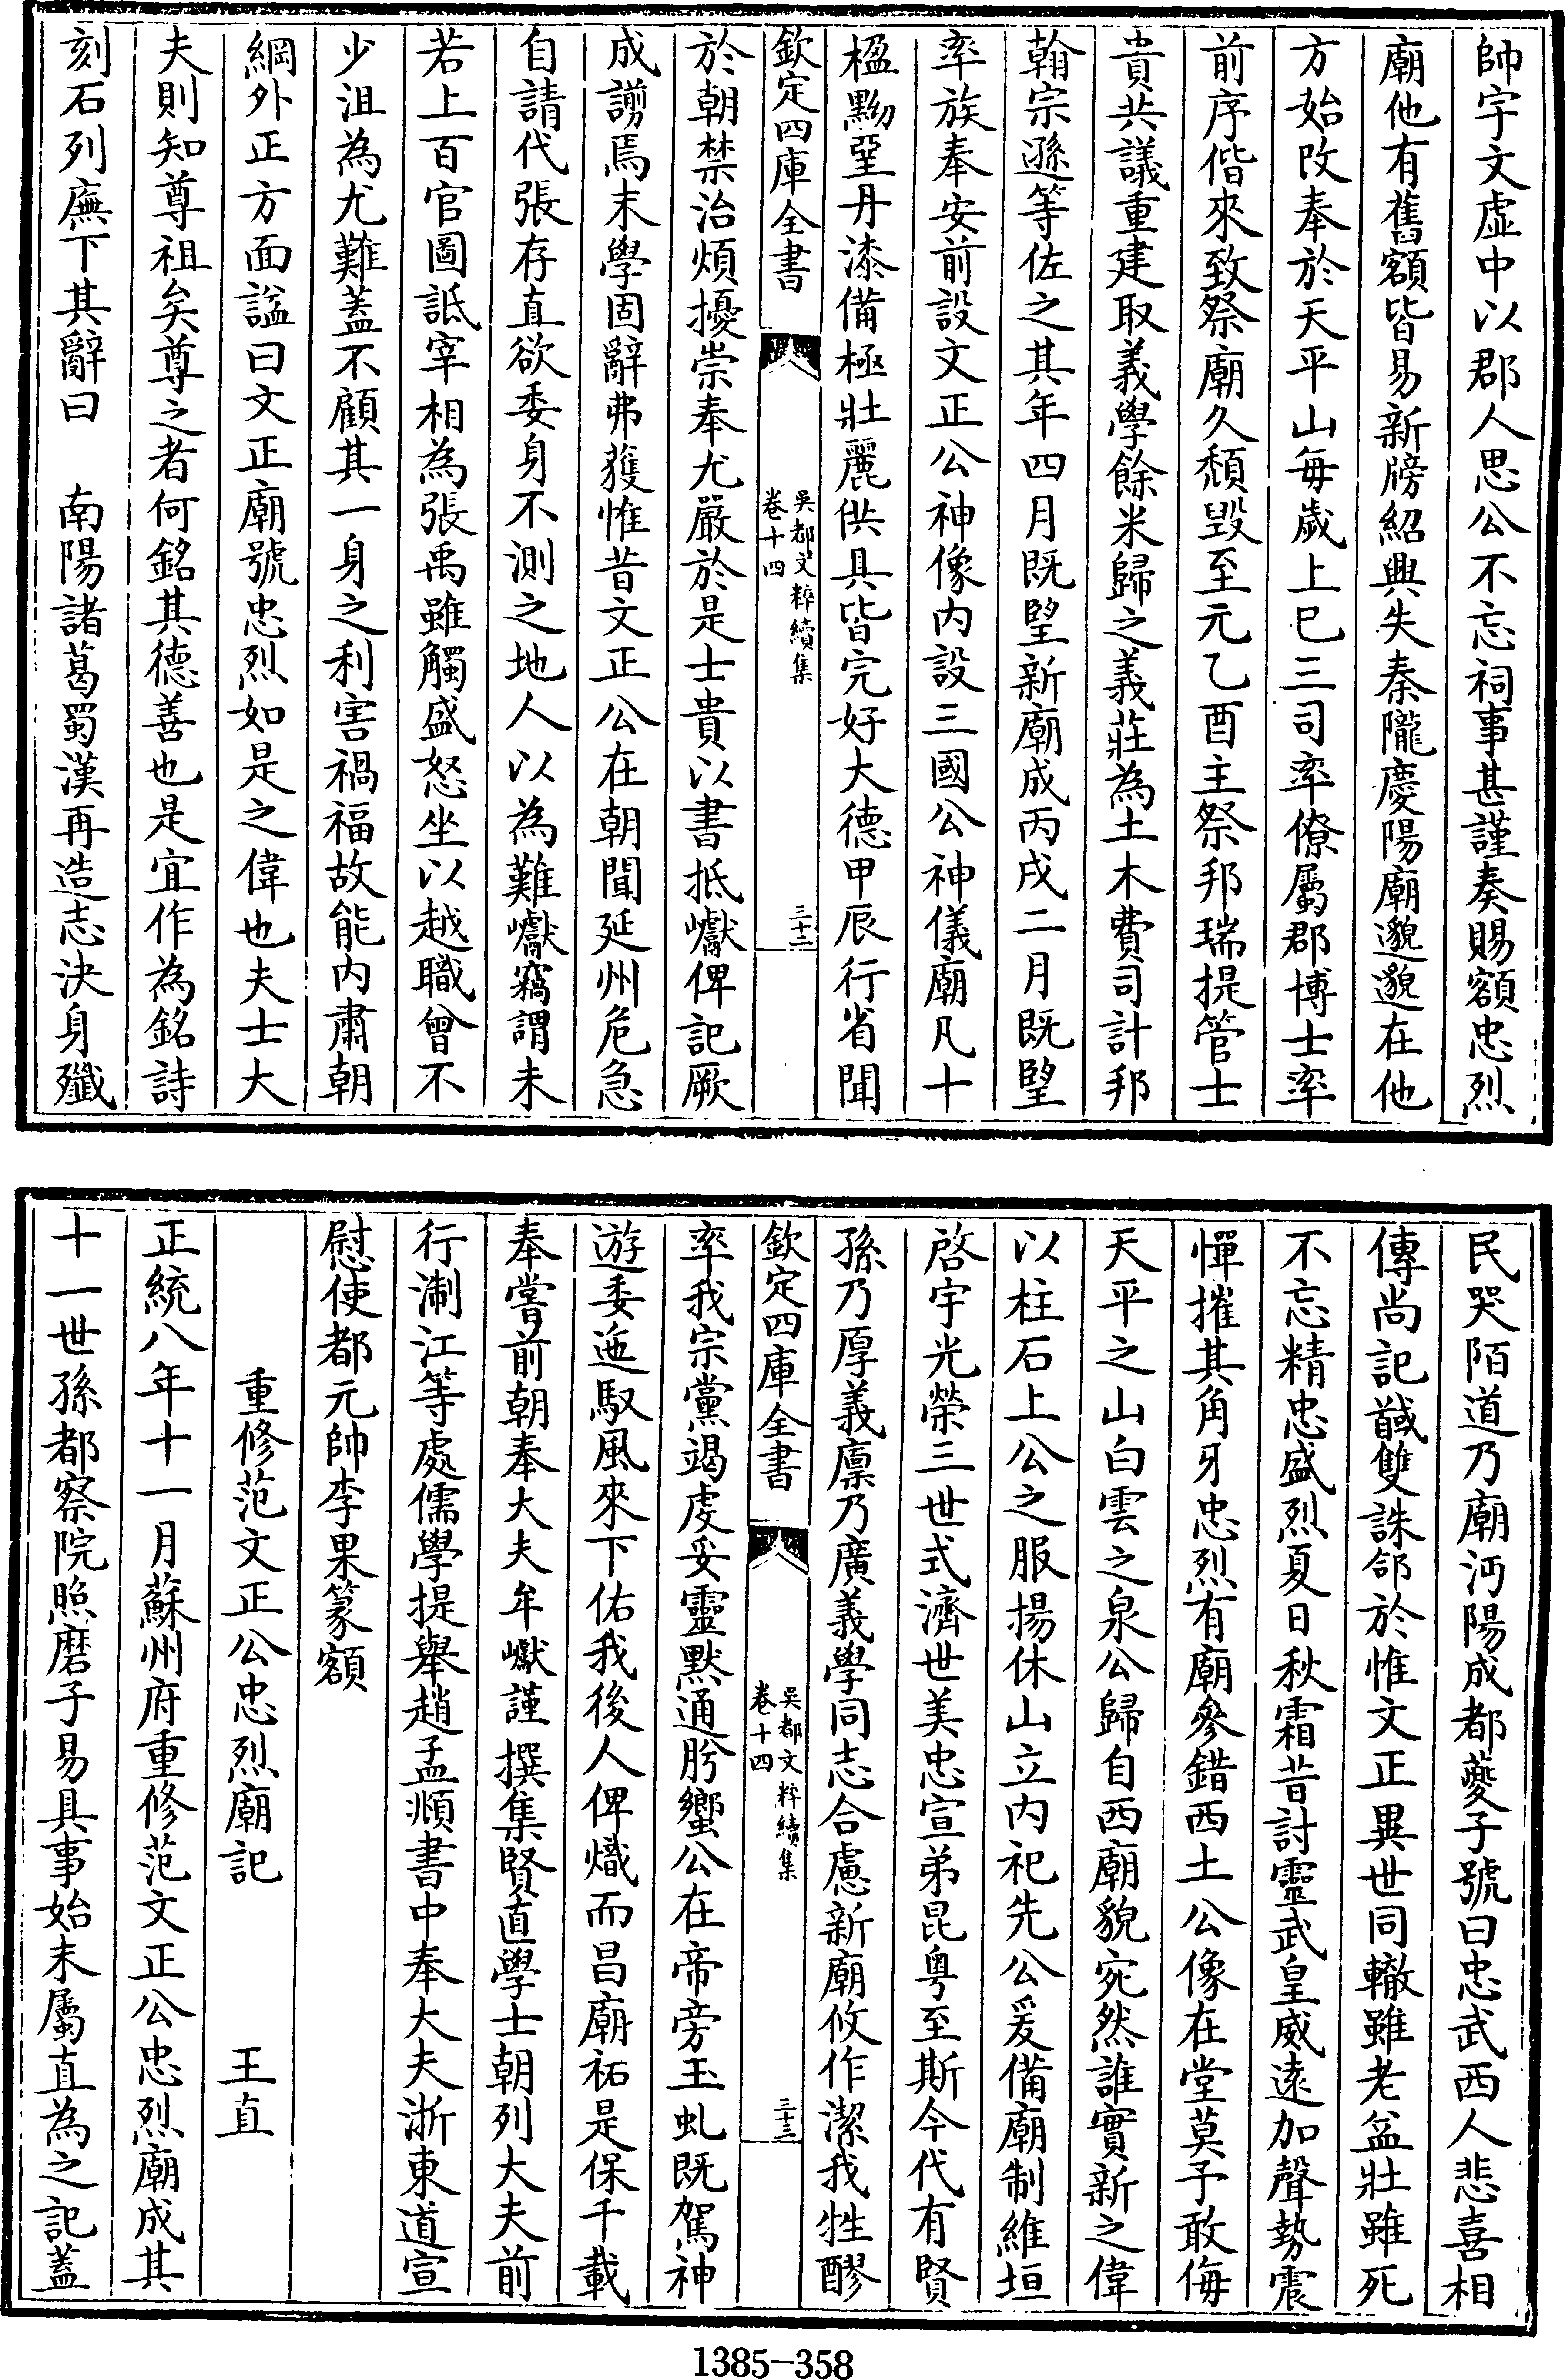 帥宇文虛中以郡人思公不忘祠事甚謹奏賜額忠烈
廟他有舊額皆易新牓紹興失秦隴慶陽廟邈邈在他
方始改奉於天平山每歲上巳三司率僚屬郡博士率
前序偕來致祭廟久頽毀至元乙酉主祭邦瑞提管士
貴共議重建取義學餘米歸之義莊為土木費司計邦
翰宗遜等佐之其年四月既朢新廟成丙戌二月既朢
率族奉安前設文正公神像内設三國公神儀廟凡十
楹黝堊丹漆備極壯麗供具皆完好大德甲辰行省聞
欽定四庫全書
吳都文粹續集
卷十四
三十二
於朝禁治煩擾崇奉尤嚴於是士貴以書抵巘俾記厥
成謭焉末學固辭弗獲惟昔文正公在朝聞延州危急
自請代張存直欲委身不測之地人以為難巘竊謂未
若上百官圖詆宰相為張禹雖觸盛怒坐以越職曾不
少沮為尤難蓋不顧其一身之利害禍福故能内肅朝
綱外正方面謚曰文正廟號忠烈如是之偉也夫士大
夫則知尊祖矣尊之者何銘其德善也是宜作為銘詩
刻石列廡下其辭曰　南陽諸葛蜀漢再造志決身殲
民哭陌道乃廟沔陽成都夔子號曰忠武西人悲喜相
傳尚記馘雙誅郃於惟文正異世同轍雖老益壯雖死
不忘精忠盛烈夏日秋霜昔討靈武皇威遠加聲勢震
憚摧其角牙忠烈有廟參錯西土公像在堂莫予敢侮
天平之山白雲之泉公歸自西廟貌宛然誰實新之偉
以柱石上公之服揚休山立内祀先公爰備廟制維垣
啓宇光榮三世式濟世美忠宣弟昆粤至斯今代有賢
孫乃厚義廪乃廣義學同志合慮新廟攸作潔我牲醪
欽定四庫全書
吳都文粹續集
卷十四
三十三
率我宗黨竭虔妥靈黙通肹蠁公在帝旁玉虬既駕神
遊委迤馭風來下佑我後人俾熾而昌廟祏是保千載
奉嘗前朝奉大夫牟巘謹撰集賢直學士朝列大夫前
行淛江等處儒學提舉趙孟頫書中奉大夫浙東道宣
慰使都元帥李果篆額
重修范文正公忠烈廟記　王直
正統八年十一月蘇州府重修范文正公忠烈廟成其
十一世孫都察院照磨子易具事始末屬直為之記蓋
1385-358